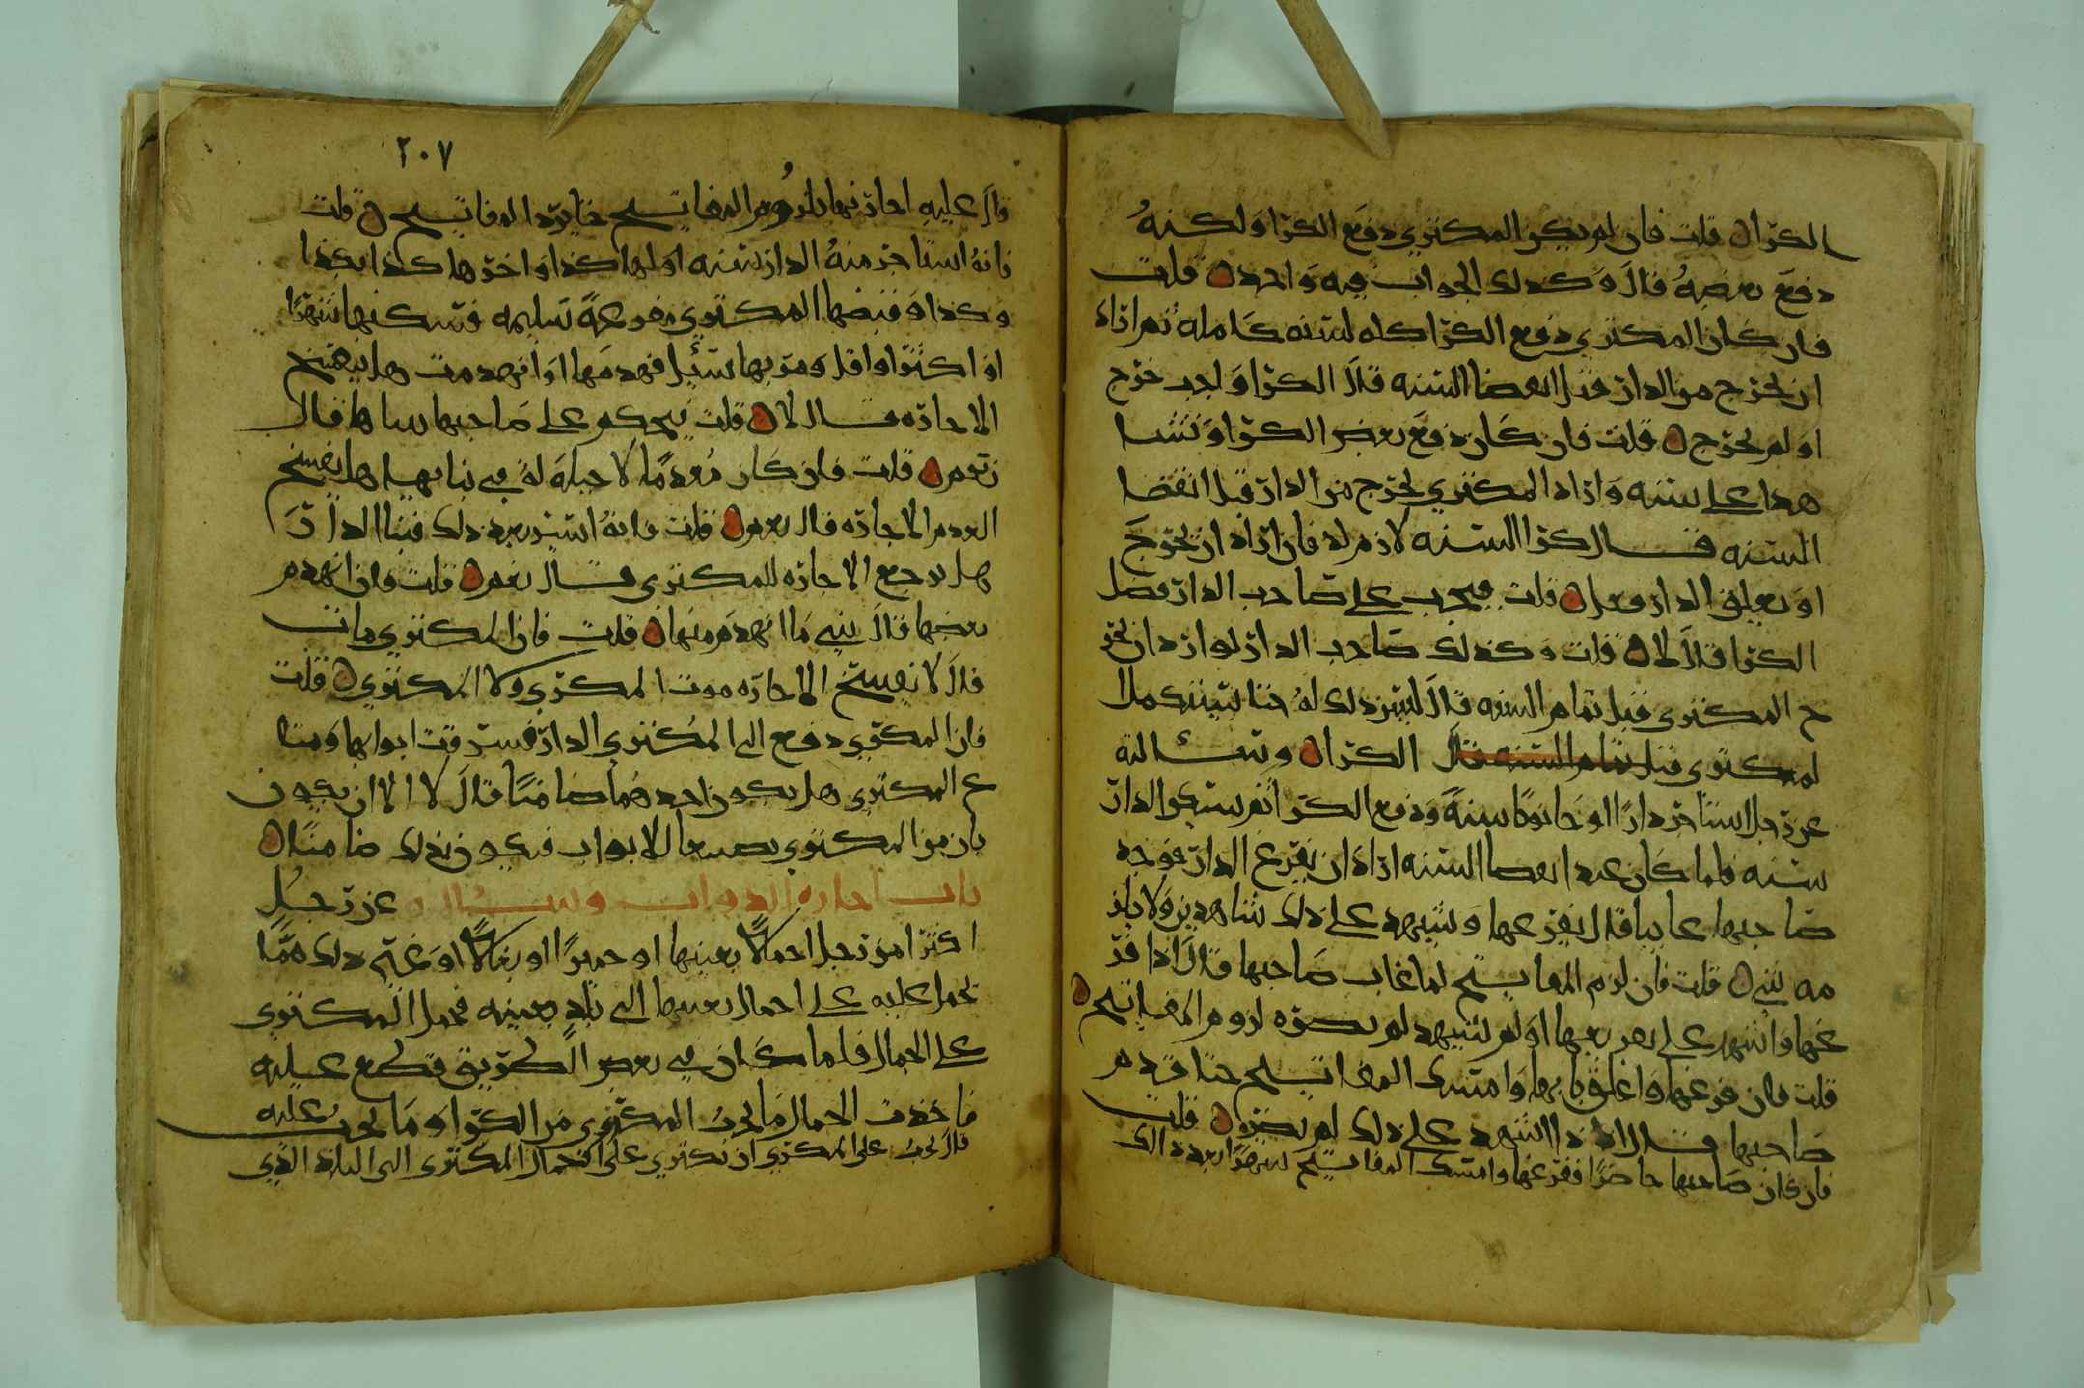 الكرا قلت فان لم يكن المكتري دفع الكرا ولكنهُ
دفع بعضهُ قال وكذلك الجواب فيه واحد قلت
فان كان المكتري دفع الكرا كله لسنه كامله ثم اراد
ان يخرج من الدار قبل انقضا السنه قال الكرا واجب خرج
او لم يخرج قلت فان كان دفع بعض الكرا وتشا
هدا على سنه واراد المكتري يخرج من الدار قبل انقضا
السنه قال كرا السنه لازم له فان اراد ان يخرج
او يغلق الدار فعل قلت فيجب على صاحب الدار فضل
الكرا قال لا قلت وكذلك صاحب الدار لو اراد ان يخر
ج المكتري قبل تمام السنه قال ليس ذلك له حتا يستكمل ا
لمكتري قبل تمام السنه قال الكرا وسالته
عن رجل استاجر دارًا او حانوتًا سنةً ودفع الكرا ثم سكن الدار
سنه فلما كان عند انقضا السنه اراد ان يفرغ الدار فوجد
صاحبها غايبا قال يفرغها ويشهد على ذلك شاهدين ولا يلز
مه شي قلت فان لزم المفاتيح لما غاب صاحبها قال اذا فر
غها واشهد على تفريغها او لم يشهد لم يضره لزوم المفاتيح
قلت فان فرغها واغلق بابها وامسك المفاتيح حتا قدم
صاحبها قال اذا اشهد على ذلك لم يضره قلت
فان كان صاحبها حاضرًا ففرغها وامسك المفاتيح شهرًا بعد ذلك
٢٠٧
قال عليه اجارتها بلزوم المفاتيح حتا يرد المفاتيح قلت
فانهُ استاجر منهُ الدار سنه اولها كذا واخرها كذا بكذا
وكذا وقبضها المكتري مفروغةً سليمه فسكنها شهرًا
او اكثر او اقل ومر بها سيل فهدمها او انهدمت هل ينفسخ
الاجاره قال لا قلت يحكم على صاحبها بناها قال
نعم قلت فان كان معدمًا لا حيلة له في بنايها هل يفسخ
العدم الاجاره قال نعم قلت فانهُ ايسر بعد ذلك فبنا الدار
هل يرجع الاجاره للمكتري قال نعم قلت فان انهدم
بعضها قال يبني ما انهدم منها قلت فان المكتري مات
قال لا يفسخ الاجاره موت المكري ولا المكتري قلت
فان المكري دفع الى المكتري الدار فسرقت ابوابها ومتا
ع المكتري هل يكون احدهما ضامنًا قال لا الا ان يكون
بان من المكتري تضييعا للابواب فيكون لذلك ضامنًا
باب اجاره الدواب وسالته عن رجُل
اكترا من رجل احمالًا بعينها او حميرًا او بغالًا او غير ذلك ممّا
يحمل عليه على احمال بعينها الى بلدٍ بعينه فحمل المكتري
على الجمال فلما كان في بعض الطريق قطع عليه
فاخذت الجمال ما يجبُ المكتري من الكرا وما يجب عليه
قال يجبُ على المكري ان يكتري على احمال المكتري الى البلد الذي